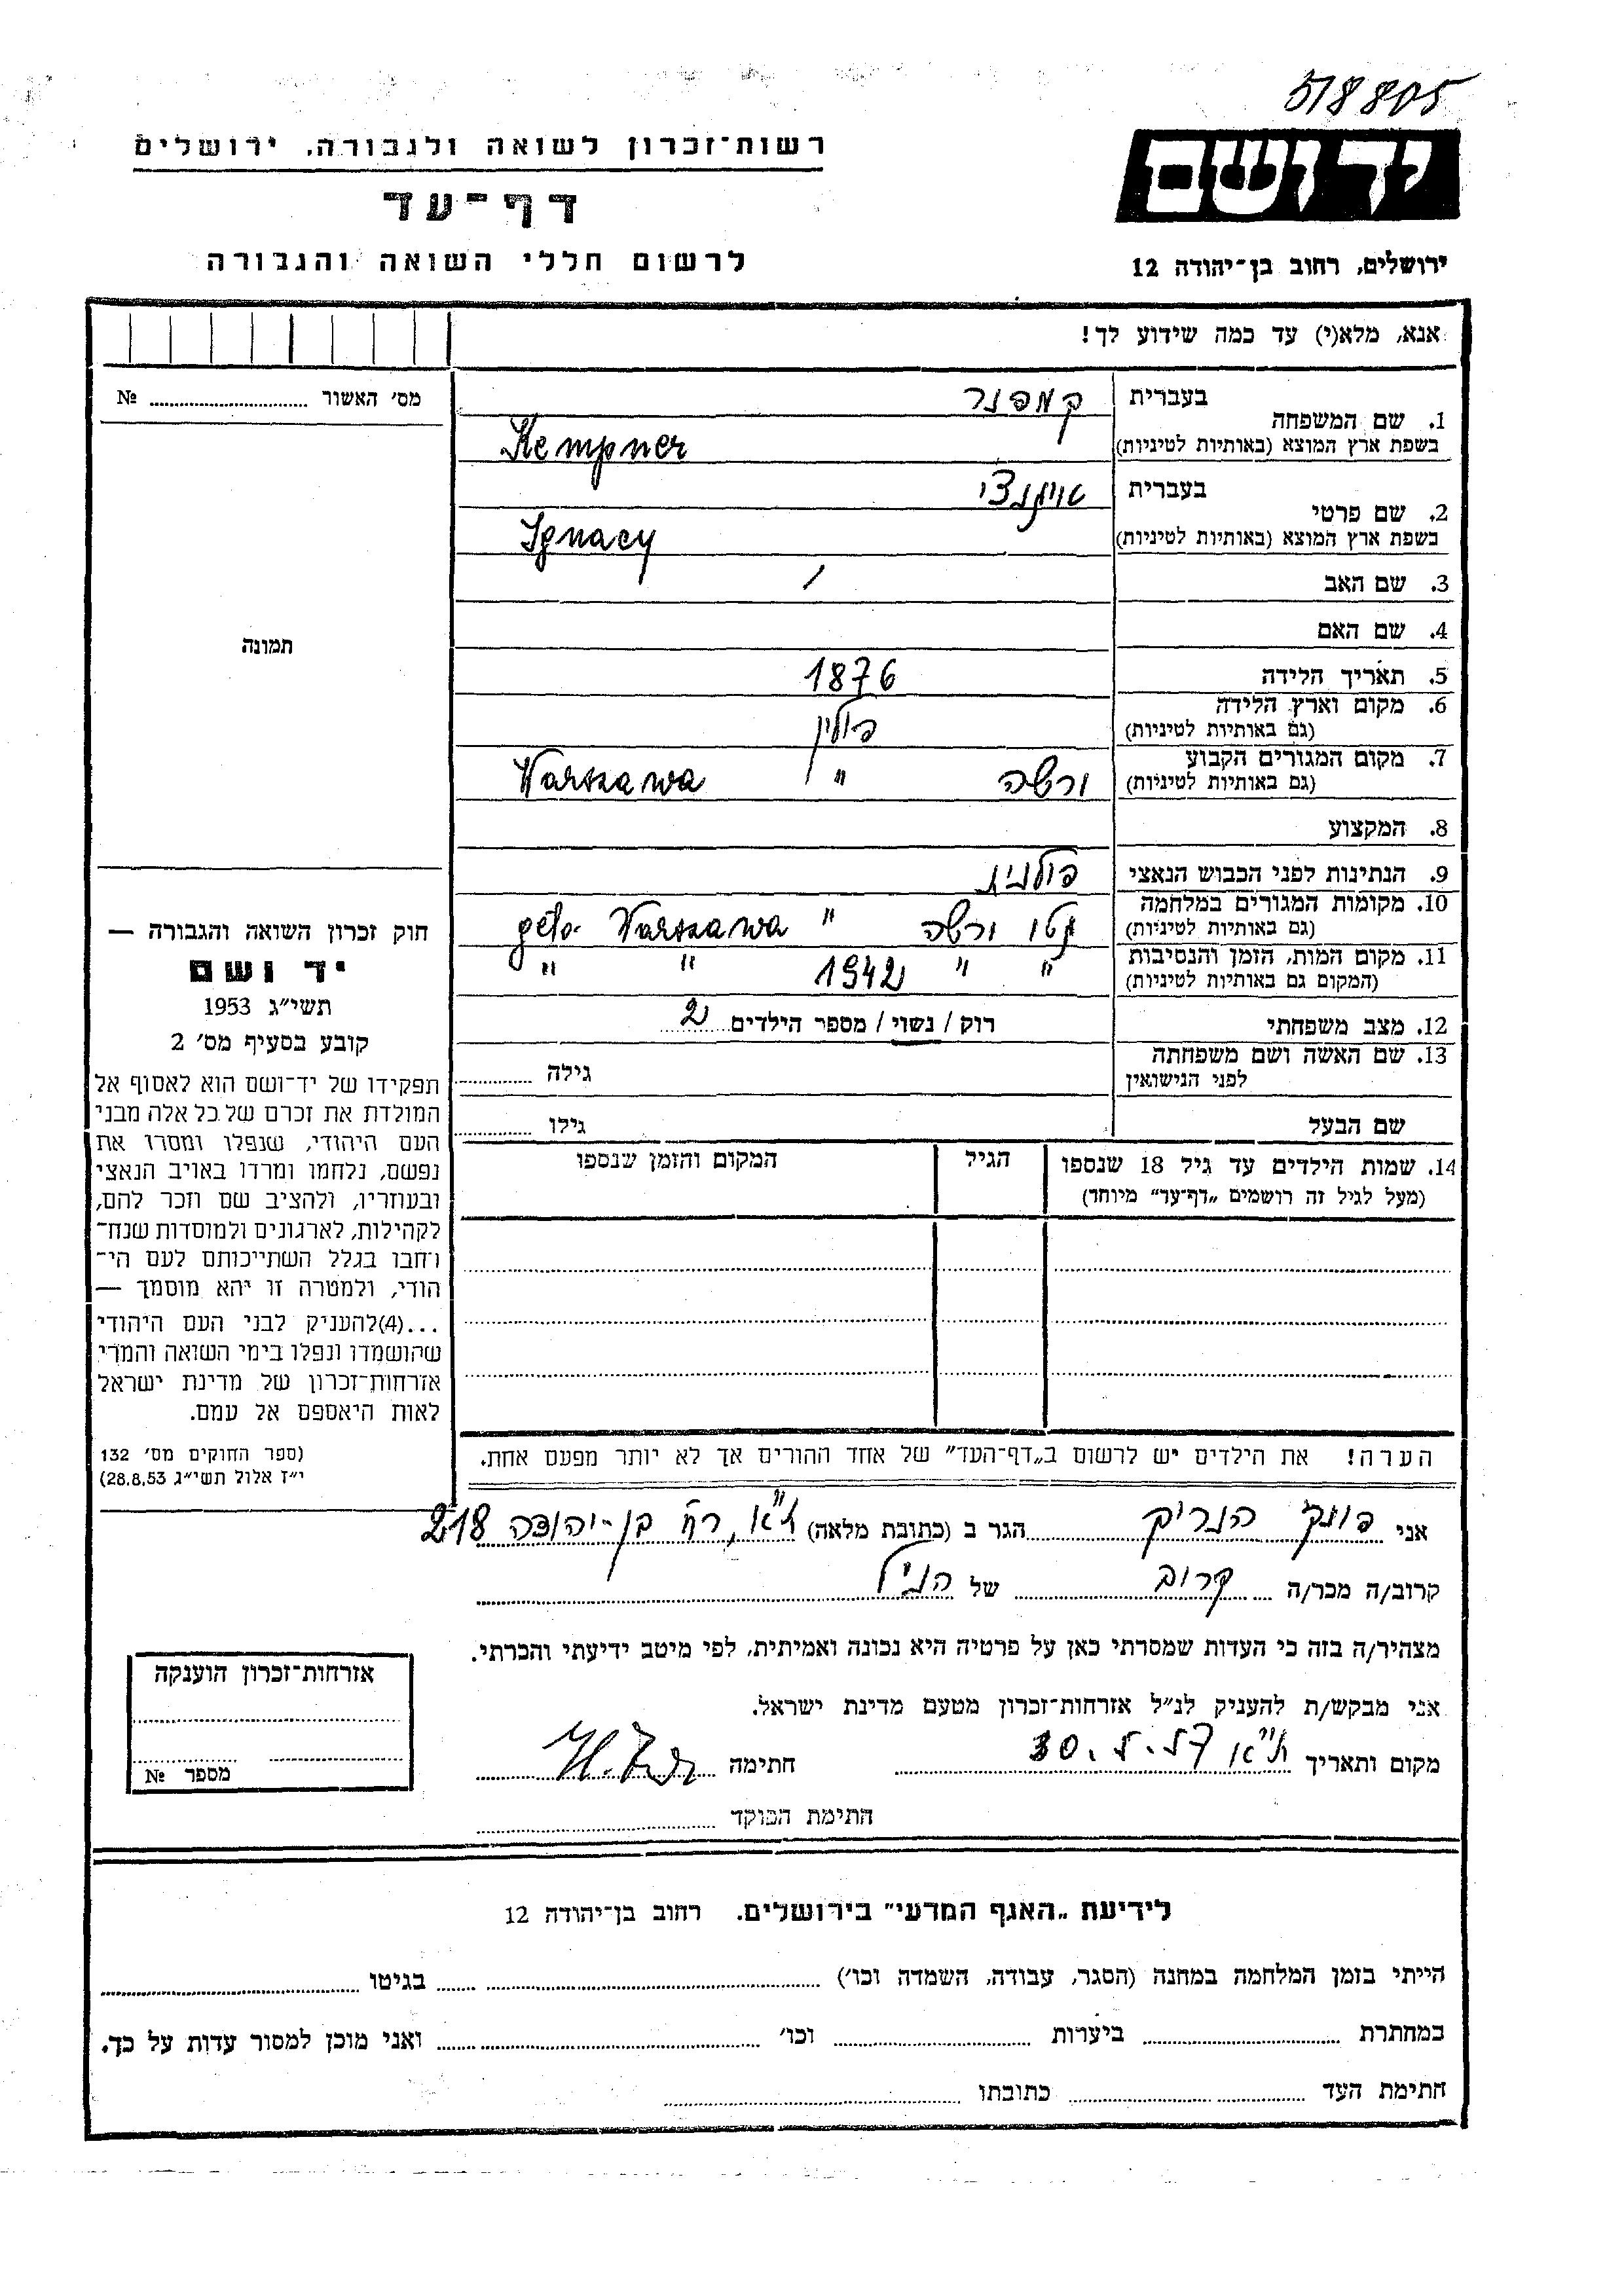 518805
יד ושם
ירושלים, רחוב בן־יהודה 12
רשות־זכרון לשואה ולגבורה, ירושלים
דף־עד
לרשום חללי השואה והגבורה
אנא, מלא(י) עד כמה שידוע לך!
מס׳ האשור № 
1. שם המשפחה
בעברית קמפנר
בשפת ארץ המוצא (באותיות לטיניות) Kempner
2. שם פרטי
בעברית
בשפת ארץ המוצא (באותיות לטיניות) Ignacy
3. שם האב /
4. שם האם
תמונה
5. תאריך הלידה 1876
6. מקום וארץ הלידה
(גם באותיות לטיניות) פולין
7. מקום המגורים הקבוע
(גם באותיות לטיניות) ורשה " Warszawa
8. המקצוע
9. הנתינות לפני הכבוש הנאצי פולנית
10. מקומות המגורים במלחמה
(גם באותיות לטיניות) גטו ורשה " geto. Warszawa
11. מקום המות, הזמן והנסיבות
(המקום גם באותיות לטיניות) " " 1942 " "
12. מצב משפחתי רוק / נשוי / מספר הילדים 2
13. שם האשה ושם משפחתה
לפני הנישואין גילה
שם הבעל גילו
14. שמות הילדים עד גיל 18 שנספו הגיל המקום והזמן שנספו
(מעל לגיל זה רושמים „דף־עד״ מיוחד)
חוק זכרון השואה והגבורה —
יד ושם
תשי״ג 1953
קובע בסעיף מס׳ 2
תפקידו של יד־ושם הוא לאסוף אל
המולדת את זכרם של כל אלה מבני
העם היהודי, שנפלו ומסרו את
נפשם, נלחמו ומרדו באויב הנאצי
ובעוזריו, ולהציב שם וזכר להם,
לקהילות, לארגונים ולמוסדות שנח־
רבו בגלל השתייכותם לעם הי־
הודי, ולמטרה זו יהא מוסמך —
...(4)להעניק לבני העם היהודי
שהושמדו ונפלו בימי השואה והמרי
אזרחות־זכרון של מדינת ישראל
לאות היאספם אל עמם.
(ספר החוקים מס׳ 132
י״ז אלול תשי״ג 28.8.53)
הערה! את הילדים יש לרשום ב„דף־העד״ של אחד ההורים אך לא יותר מפעם אחת.
אני פונק הנריק הגר ב (כתובת מלאה) ת"א, רח' בן-יהודה 218
קרוב/ה מכר/ה קרוב של הנ"ל
מצהיר/ה בזה כי העדות שמסרתי כאן על פרטיה היא נכונה ואמיתית, לפי מיטב ידיעתי והכרתי.
אני מבקש/ת להעניק לנ״ל אזרחות־זכרון מטעם מדינת ישראל.
מקום ותאריך ת"א 30. 5. 57 חתימה
חתימת הפוקד
אזרחות־זכרון הוענקה
מספר №
לידיעת „האגף המדעי״ בירושלים. רחוב בן־יהודה 12
הייתי בזמן המלחמה במחנה (הסגר, עבודה, השמדה וכו׳) בגיטו
במחתרת ביערות וכו׳ ואני מוכן למסור עדות על כך.
חתימת העד כתובתו